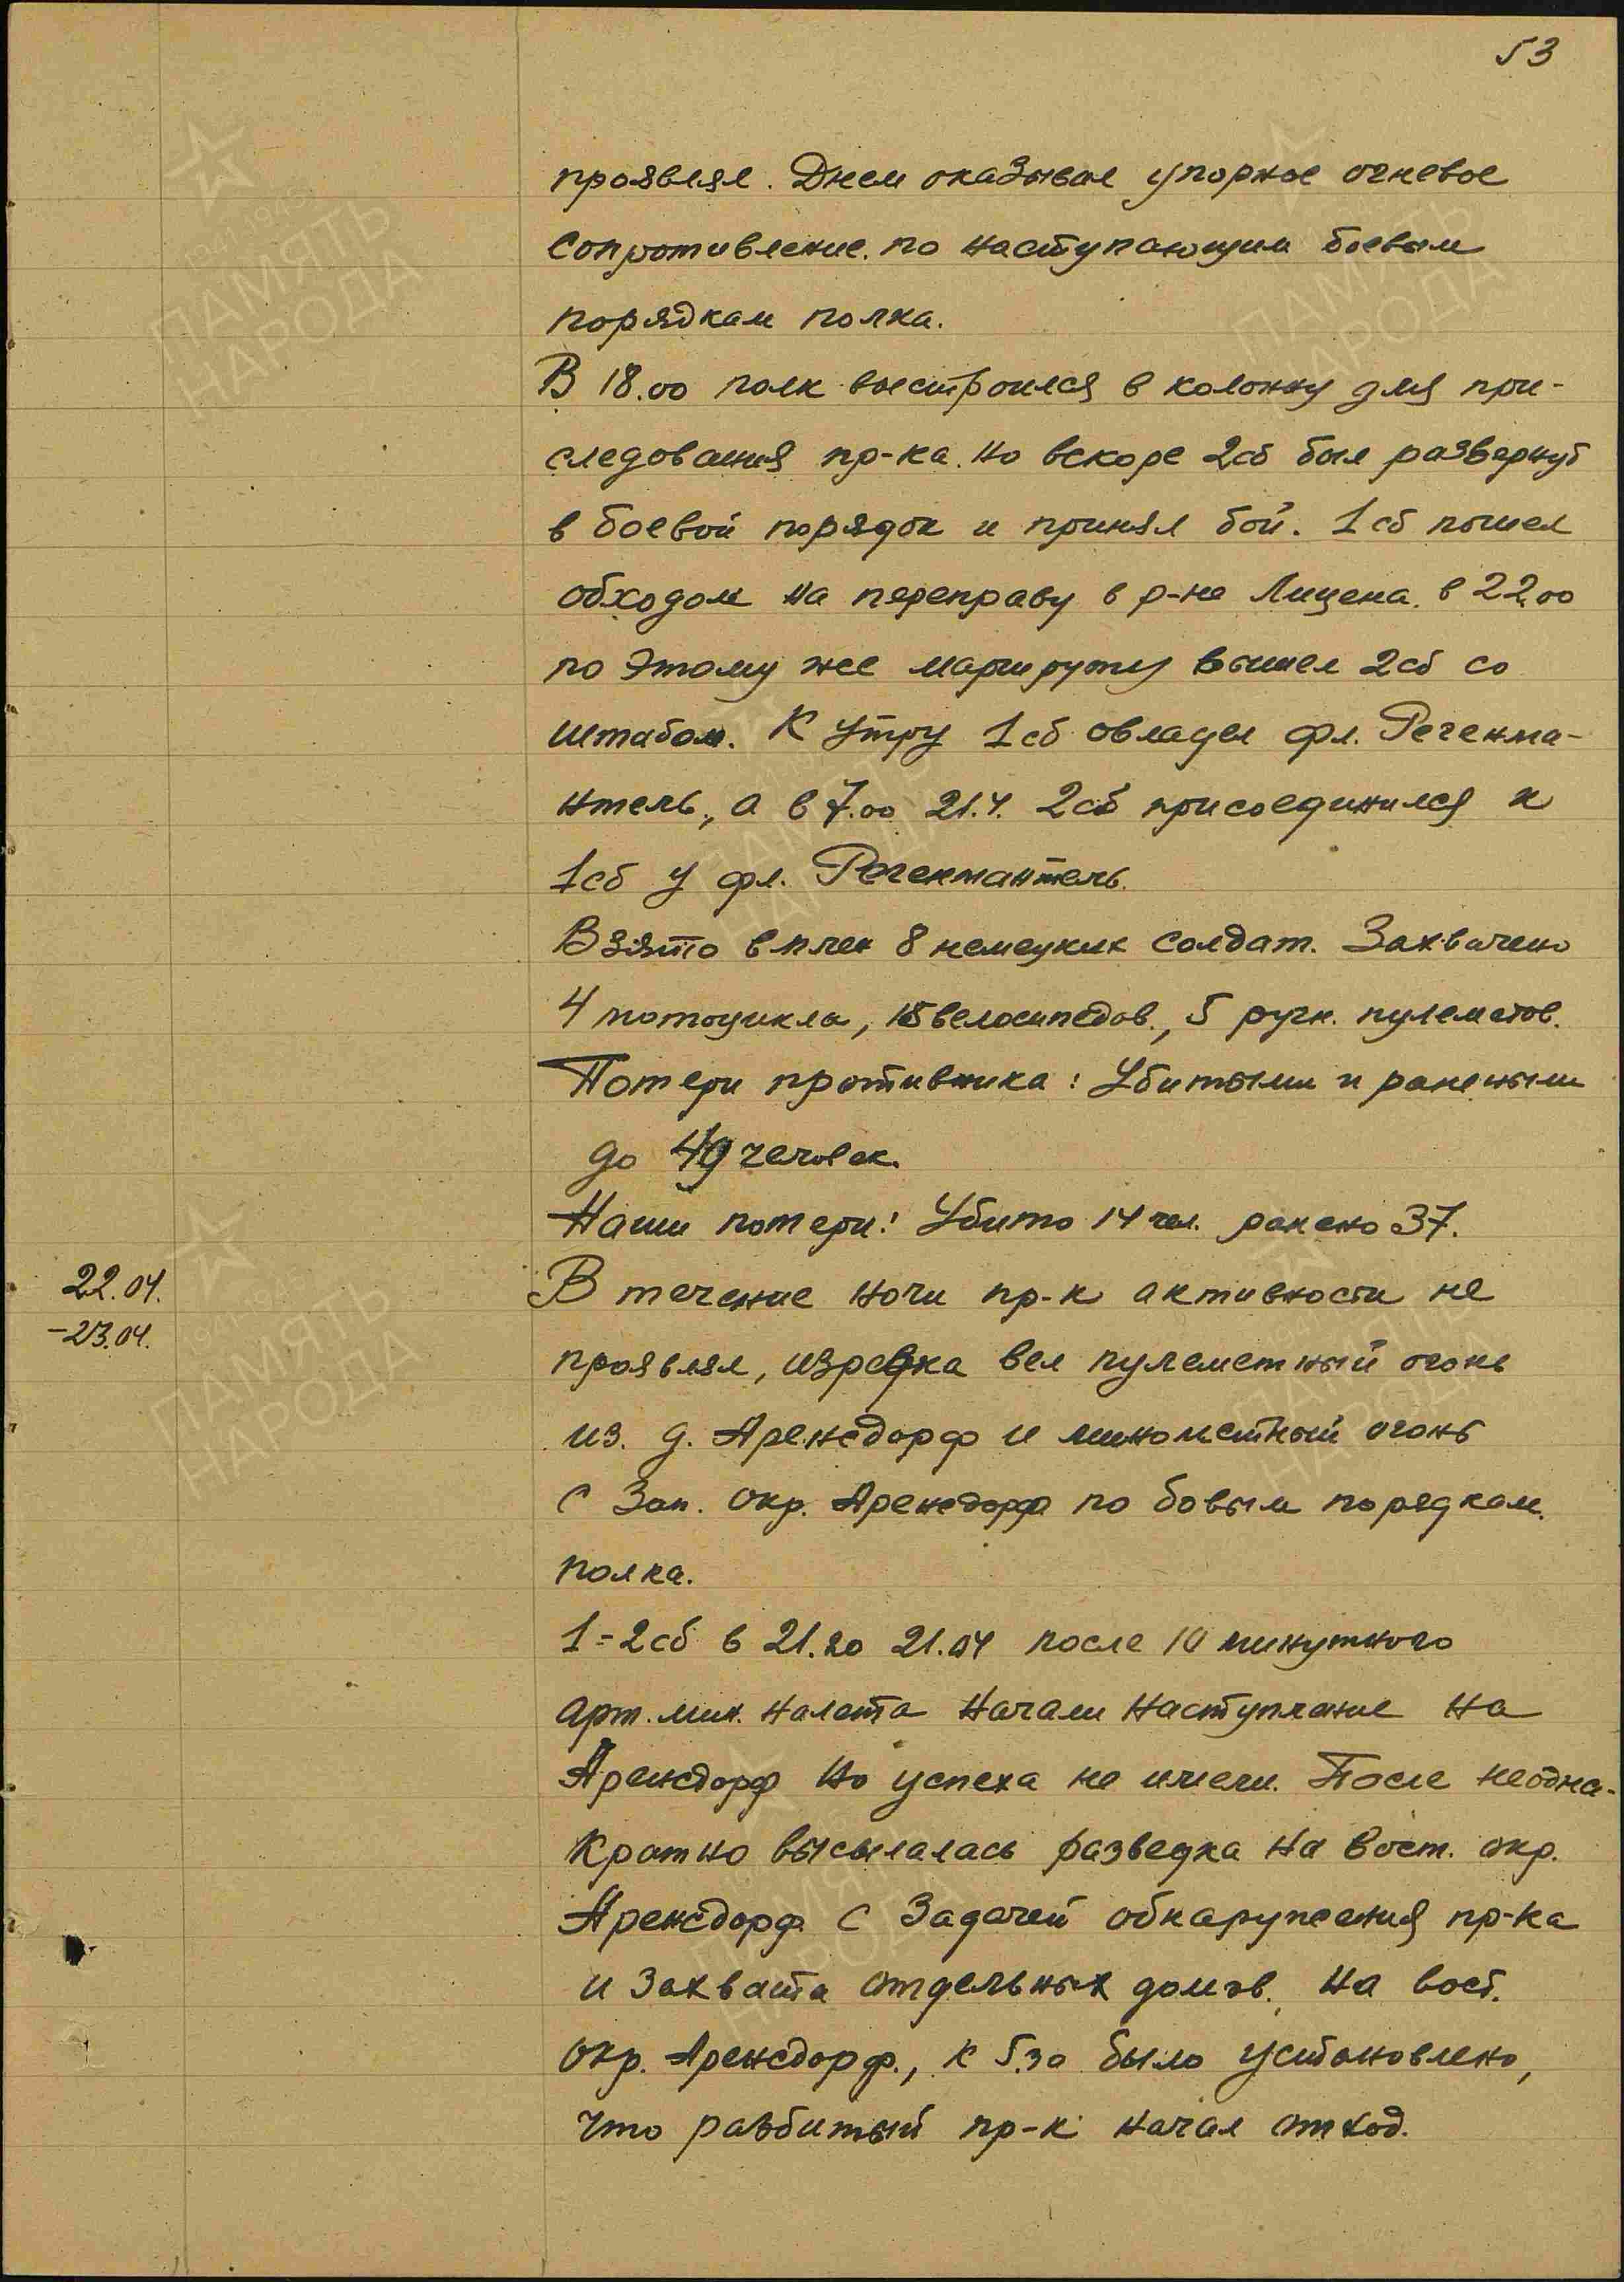 53
проявлял. Днем оказывал упорное огневое
сопротивление. по наступающим боевым
порядкам полка.
В 18.00 полк выстроился в колонну для при-
следования пр-ка. но вскоре 2сб был развернут
в боевой порядок и принял бой. 1сб пошел
обходом на переправу в р-не Лицена. в 22.00
по этому же маршруту вышел 2сб со
штабом. К утру 1сб овладел фл. Регенма-
нтель, а в 7.00 21.4. 2сб присоединился к
1сб у фл. Регенмантель.
Взято в плен 8 немецких солдат. Захвачено
4 мотоцикла, 15 велосипедов, 5 ручн. пулеметов.
Потери противника: Убитыми и ранеными
до человек.
Наши потери: Убито 14 чел. ранено 37.
22.04.
-23.04.
В течение ночи пр-к активности не
проявлял, изредка вел пулеметный огонь
из. д. Аренсдорф и минометный огонь
с Зап. окр. Аренсдорф по бовым порядкам.
полка.
1=2сб в 21.20 21.04 после 10 минутного
арт. мин. налета начали наступление на
Аренсдорф но успеха не имели. После неодно-
кратно высылалась разведка на вост. окр.
Аренсдорф с задачей обнаружения пр-ка
и захвата отдельных домов. на вост.
окр. Аренсдорф., к 5.30 было установлено,
что разбитый пр-к начал отход.
ПАМЯТЬ
НАРОДА